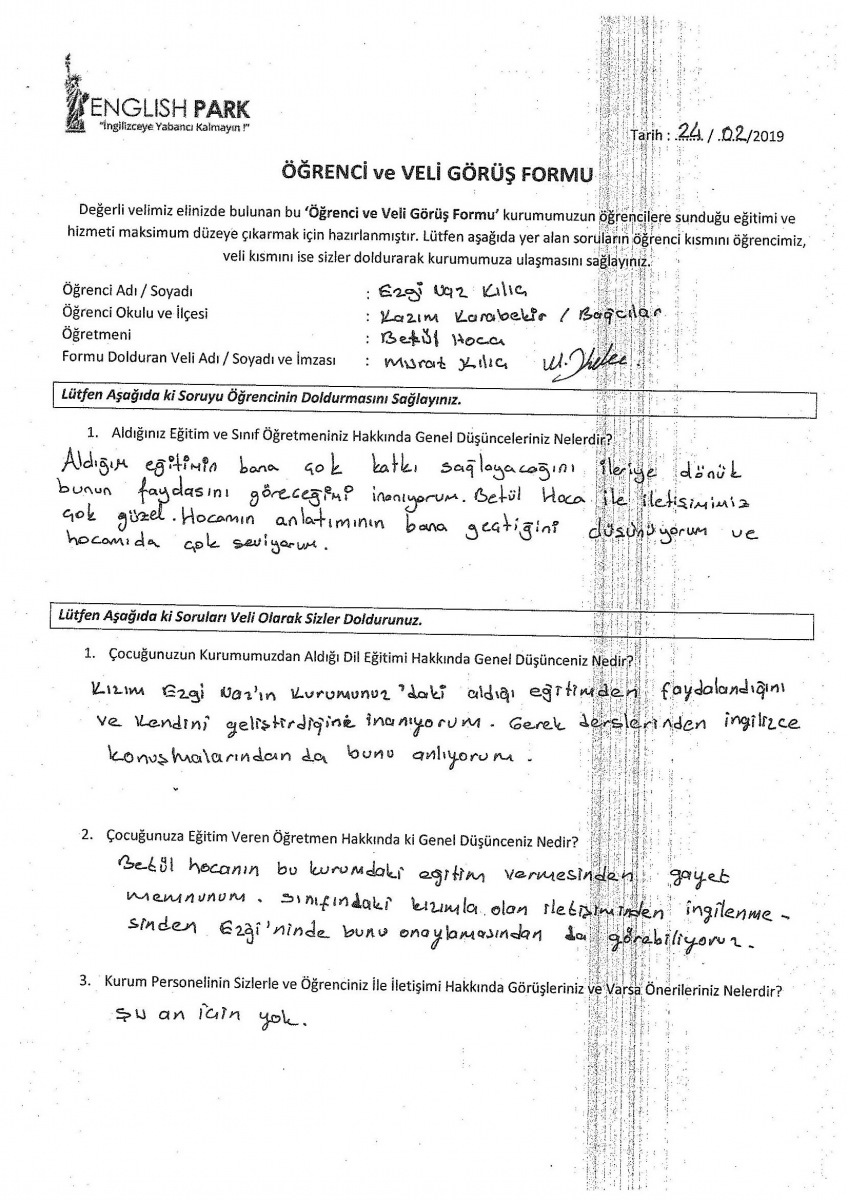 ENGLISH PARK
"İngilizceye Yabancı Kalmayın !"
Tarih : 24 / 02/2019
ÖĞRENCİ ve VELİ GÖRÜŞ FORMU
Değerli velimiz elinizde bulunan bu ‘Öğrenci ve Veli Görüş Formu’ kurumumuzun öğrencilere sunduğu eğitimi ve
hizmeti maksimum düzeye çıkarmak için hazırlanmıştır. Lütfen aşağıda yer alan soruların öğrenci kısmını öğrencimiz,
veli kısmını ise sizler doldurarak kurumumuza ulaşmasını sağlayınız.
Öğrenci Adı / Soyadı : Ezgi Naz Kılıç
Öğrenci Okulu ve İlçesi : Kazım Karabekir / Bağcılar
Öğretmeni : Betül Hoca
Formu Dolduran Veli Adı / Soyadı ve İmzası : Murat Kılıç
Lütfen Aşağıda ki Soruyu Öğrencinin Doldurmasını Sağlayınız.
1. Aldığınız Eğitim ve Sınıf Öğretmeniniz Hakkında Genel Düşünceleriniz Nelerdir?
Aldığım eğitimin bana çok katkı sağlayacağını ileriye dönük
bunun faydasını göreceğimi inanıyorum. Betül Hoca ile iletişimimiz
çok güzel. Hocamın anlatımının bana geçtiğini düşünüyorum ve
hocamıda çok seviyorum.
Lütfen Aşağıda ki Soruları Veli Olarak Sizler Doldurunuz.
1. Çocuğunuzun Kurumumuzdan Aldığı Dil Eğitimi Hakkında Genel Düşünceniz Nedir?
Kızım Ezgi Naz'ın kurumunuz'daki aldığı eğitimden faydalandığını
ve kendini geliştirdiğine inanıyorum. Gerek derslerinden ingilizce
konuşmalarından da bunu anlıyorum.
2. Çocuğunuza Eğitim Veren Öğretmen Hakkında ki Genel Düşünceniz Nedir?
Betül hocanın bu kurumdaki eğitim vermesinden gayet
memnunum. Sınıfındaki kızımla olan iletişiminden ingilenme-
sinden Ezgi'ninde bunu onaylamasından da görebiliyoruz.
3. Kurum Personelinin Sizlerle ve Öğrenciniz İle İletişimi Hakkında Görüşleriniz ve Varsa Önerileriniz Nelerdir?
Şu an için yok.